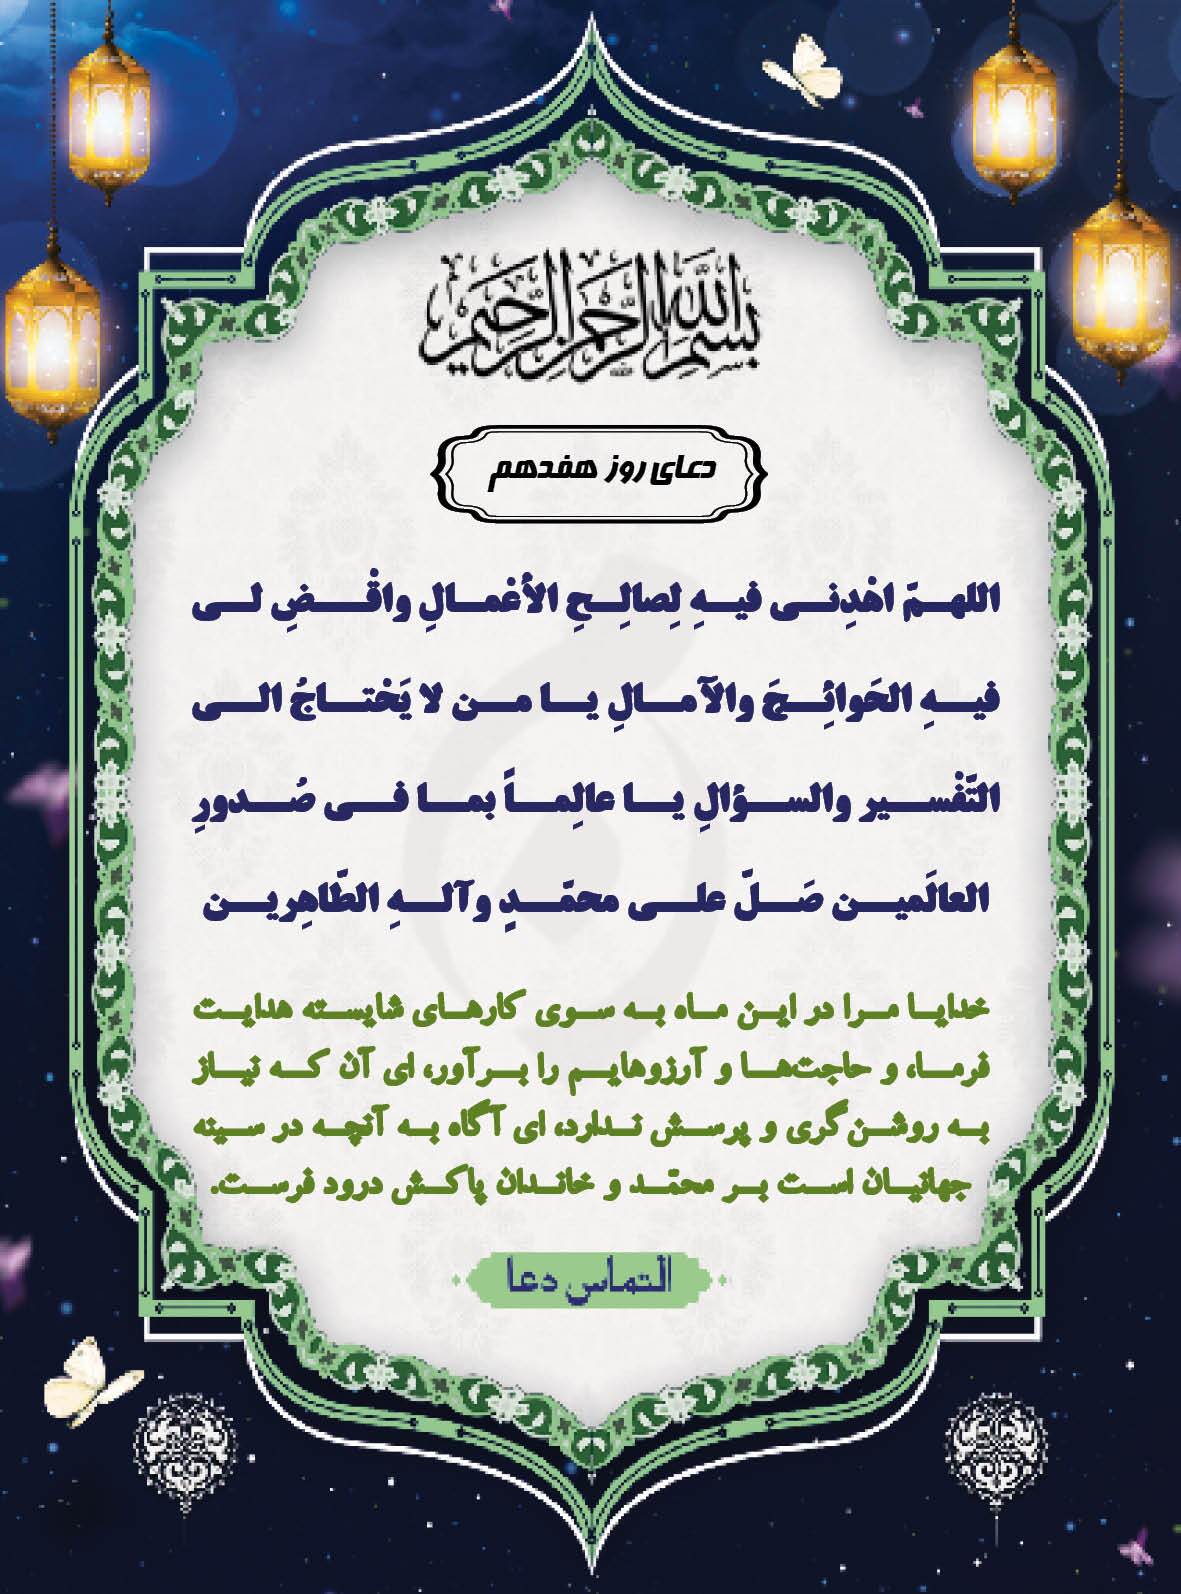 بسم الله الرحمن الرحیم
دعای روز هفدهم
اللهمّ اهْدِنی فیهِ لِصالِحِ الأعْمالِ واقْضِ لی
فیهِ الحَوائِجَ والآمالِ یا من لا یَحْتاجُ الی
التّفْسیر والسؤالِ یا عالِماً بما فی صُدورِ
العالَمین صَلّ علی محمّدٍ وآلهِ الطّاهِرین
خدایا مرا در این ماه به سوی کارهای شایسته هدایت
فرما، و حاجت‌ها و آرزوهایم را برآور، ای آن که نیاز
به روشن‌گری و پرسش ندارد، ای آگاه به آنچه در سینه
جهانیان است بر محمّد و خاندان پاکش درود فرست.
التماس دعا